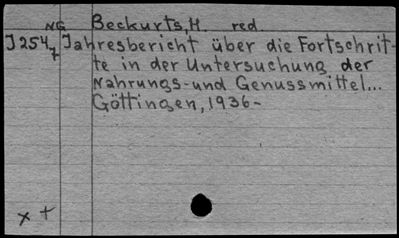 NG Beckurts, H. red.
J254 Jahresbericht über die Fortschrit-
7 te in der Untersuchung der
Nahrungs- und Genussmittel...
Göttingen, 1936-
x +